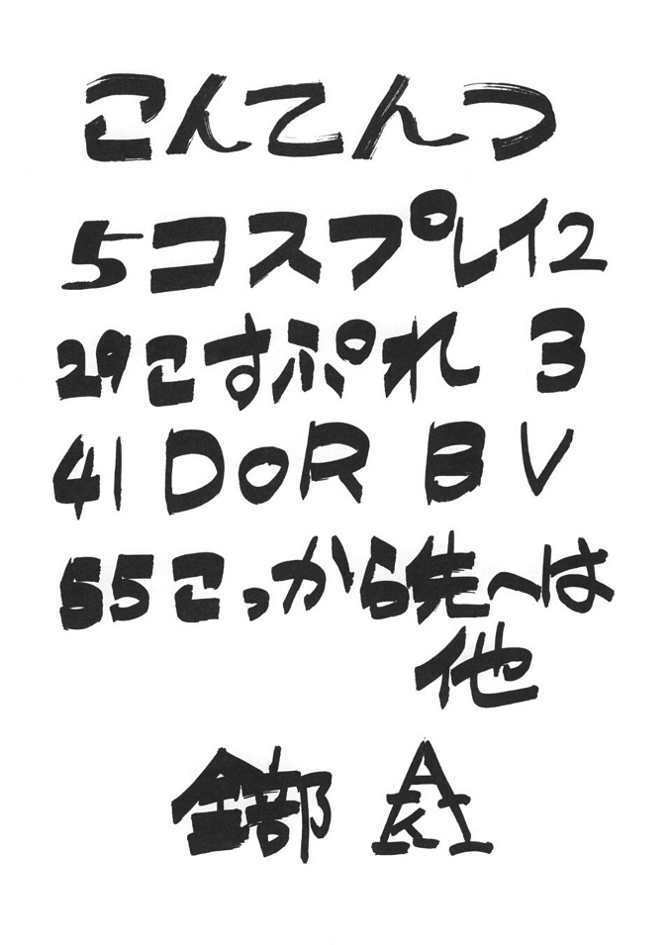 こんてんつ
5コスプレイ2
29こすぷれ 3
41 DoR BV
55こっから先へは
他
全部 AkI